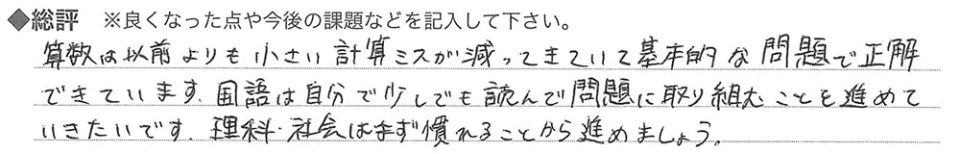 ◆総評 ※良くなった点や今後の課題などを記入して下さい。
算数は以前よりも小さい計算ミスが減ってきていて基本的な問題で正解
できています。国語は自分で少しでも読んで問題に取り組むことを進めて
いきたいです。理科・社会はまず慣れることから進めましょう。